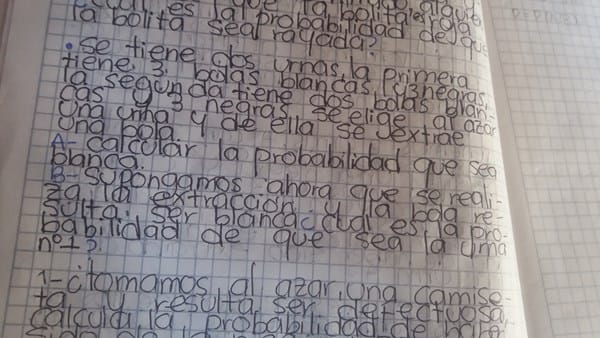 es la probabilidad de que
la bolita sea rayada?
• Se tiene dos urnas, la primera
tiene 3 bolas blancas, y 3 negras,
la segunda tiene dos bolas blan-
cas y 3 negras se elige al azar
una urna y de ella se extrae
una bola.
A- calcular la probabilidad que sea
blanca.
B- Supongamos ahora que se reali-
za la extracción y la bola re-
sulta ser blanca ¿cual es la pro-
babilidad de que sea la urna
n°1?
1- si tomamos al azar una camise-
ta y resulta ser defectuosa,
calcula la probabilidad de